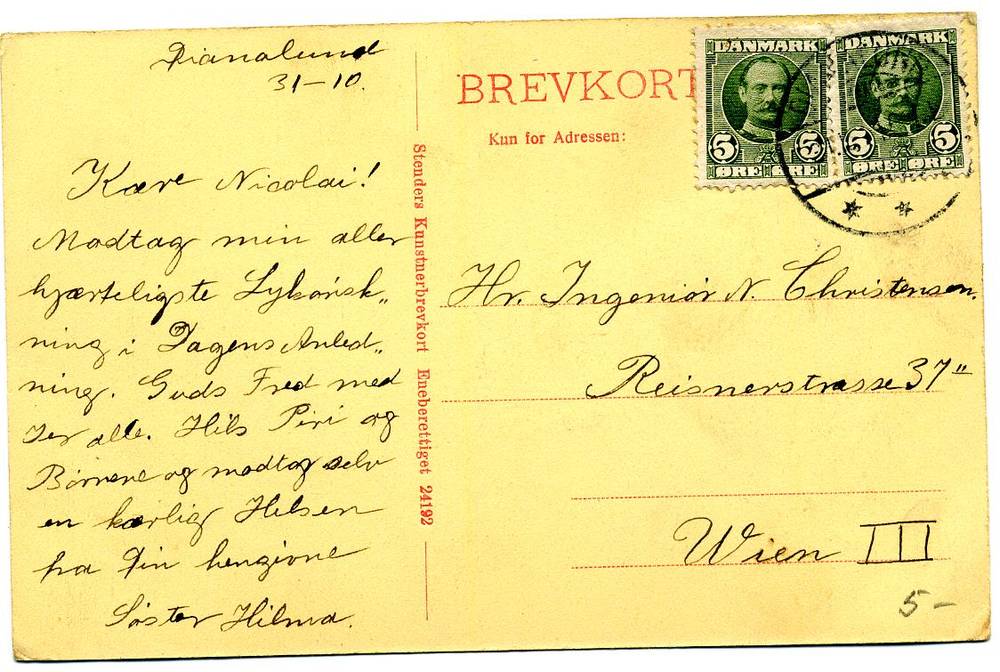 Dianalund
31-10.
Kære Nicolai!
Modtag min aller
hjærteligste Lykønsk„
ning i Dagens Anled„
ning. Guds Fred med
Jer alle. Hils Piri og
Børnene og modtag selv
en kærlig Hilsen
fra Din hengivne
Søster Hilma.
Stenders Kunstnerbrevkort Eneberettiget 24192
BREVKORT
Kun for Adressen:
DANMARK DANMARK
5 5 5 5
ØRE ØRE ØRE ØRE
Hr. Ingeniør N. Christensen.
Reisnerstrasse 37"
Wien III
5-